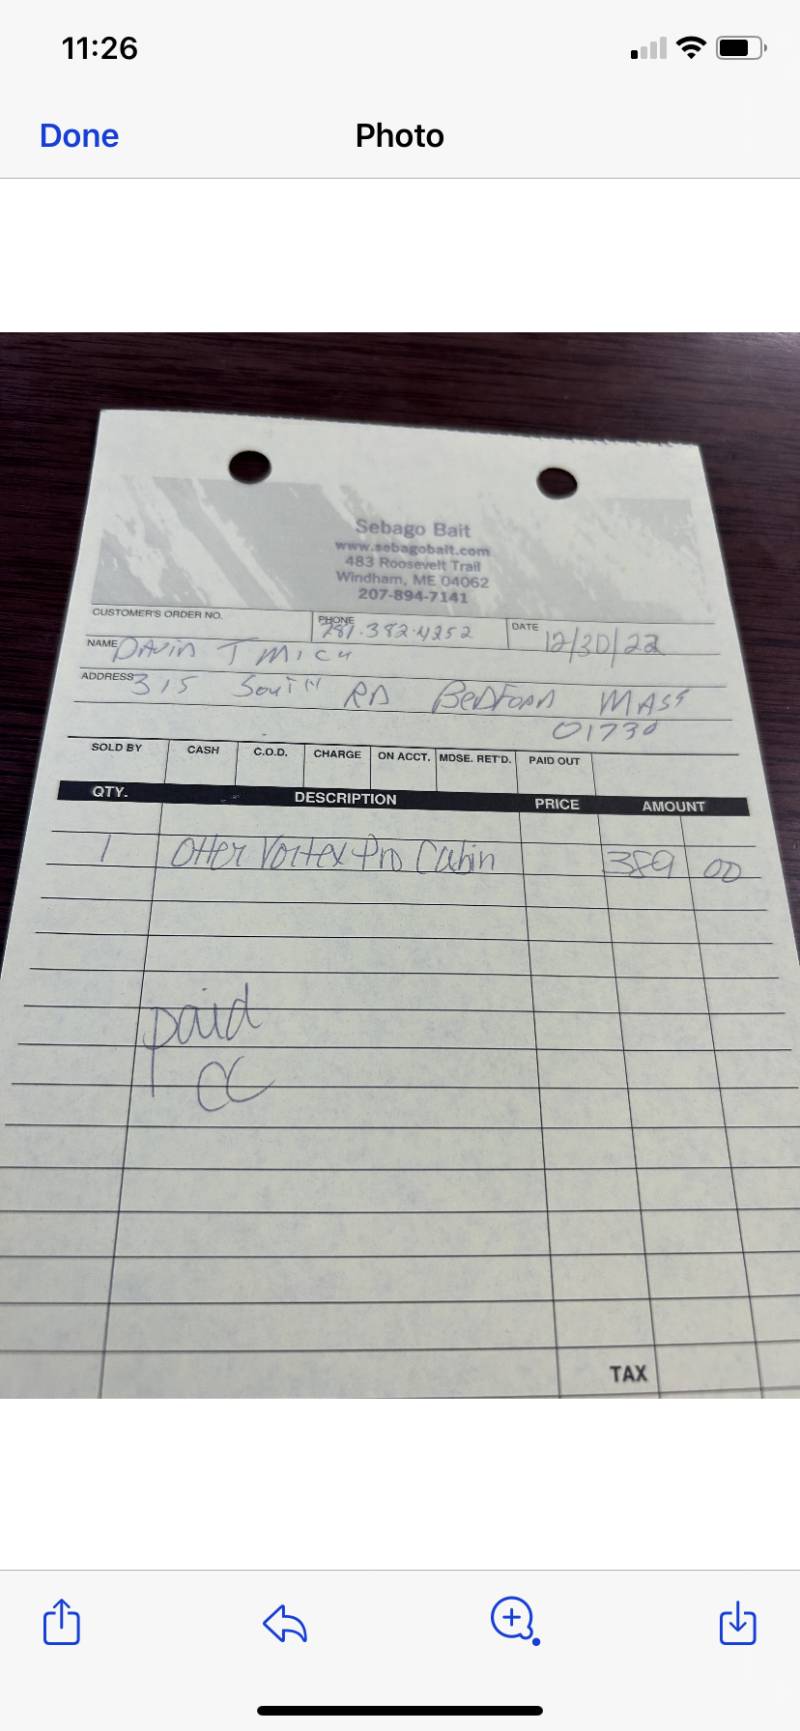 11:26
Done Photo
Sebago Bait
www.sebagobait.com
483 Roosevelt Trail
Windham, ME 04062
207-894-7141
CUSTOMER'S ORDER NO. PHONE 781.382.4252 DATE 12/30/22
NAME T
ADDRESS 315 South RD Bedford MASS
01730
SOLD BY CASH C.O.D. CHARGE ON ACCT. MDSE. RET'D. PAID OUT
QTY. DESCRIPTION PRICE AMOUNT
1 Otter Vortex Pro Cabin 389 00
paid
CC
TAX